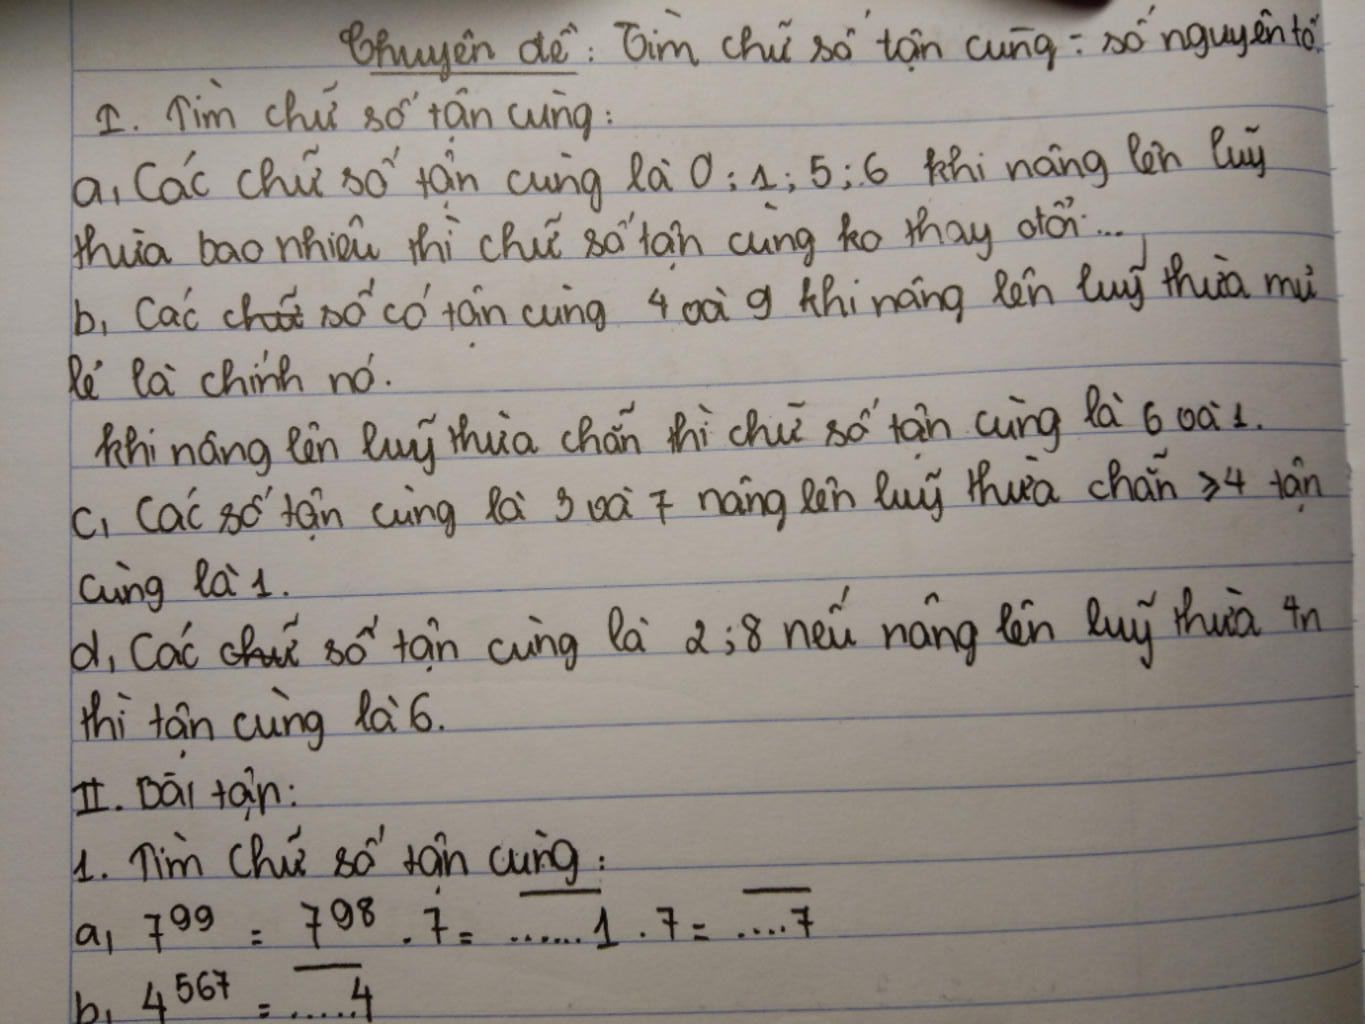 Chuyên đề: Tìm chữ số tận cùng - số nguyên tố.
I. Tìm chữ số tận cùng:
a, Các chữ số tận cùng là 0; 1; 5; 6 khi nâng lên luỹ
thừa bao nhiêu thì chữ số tận cùng ko thay đổi...
b, Các chữ số có tận cùng 4 và 9 khi nâng lên luỹ thừa mũ
lẻ là chính nó.
khi nâng lên luỹ thừa chẵn thì chữ số tận cùng là 6 và 1.
c, Các số tận cùng là 3 và 7 nâng lên luỹ thừa chẵn ≥4 tận
cùng là 1.
d, Các chữ số tận cùng là 2; 8 nếu nâng lên luỹ thừa 4n
thì tận cùng là 6.
II. Bài tập:
1. Tìm chữ số tận cùng:
a, 7⁹⁹ = 7⁹⁸ . 7 = ......1 . 7 = ....7
b, 4⁵⁶⁷ = .....4